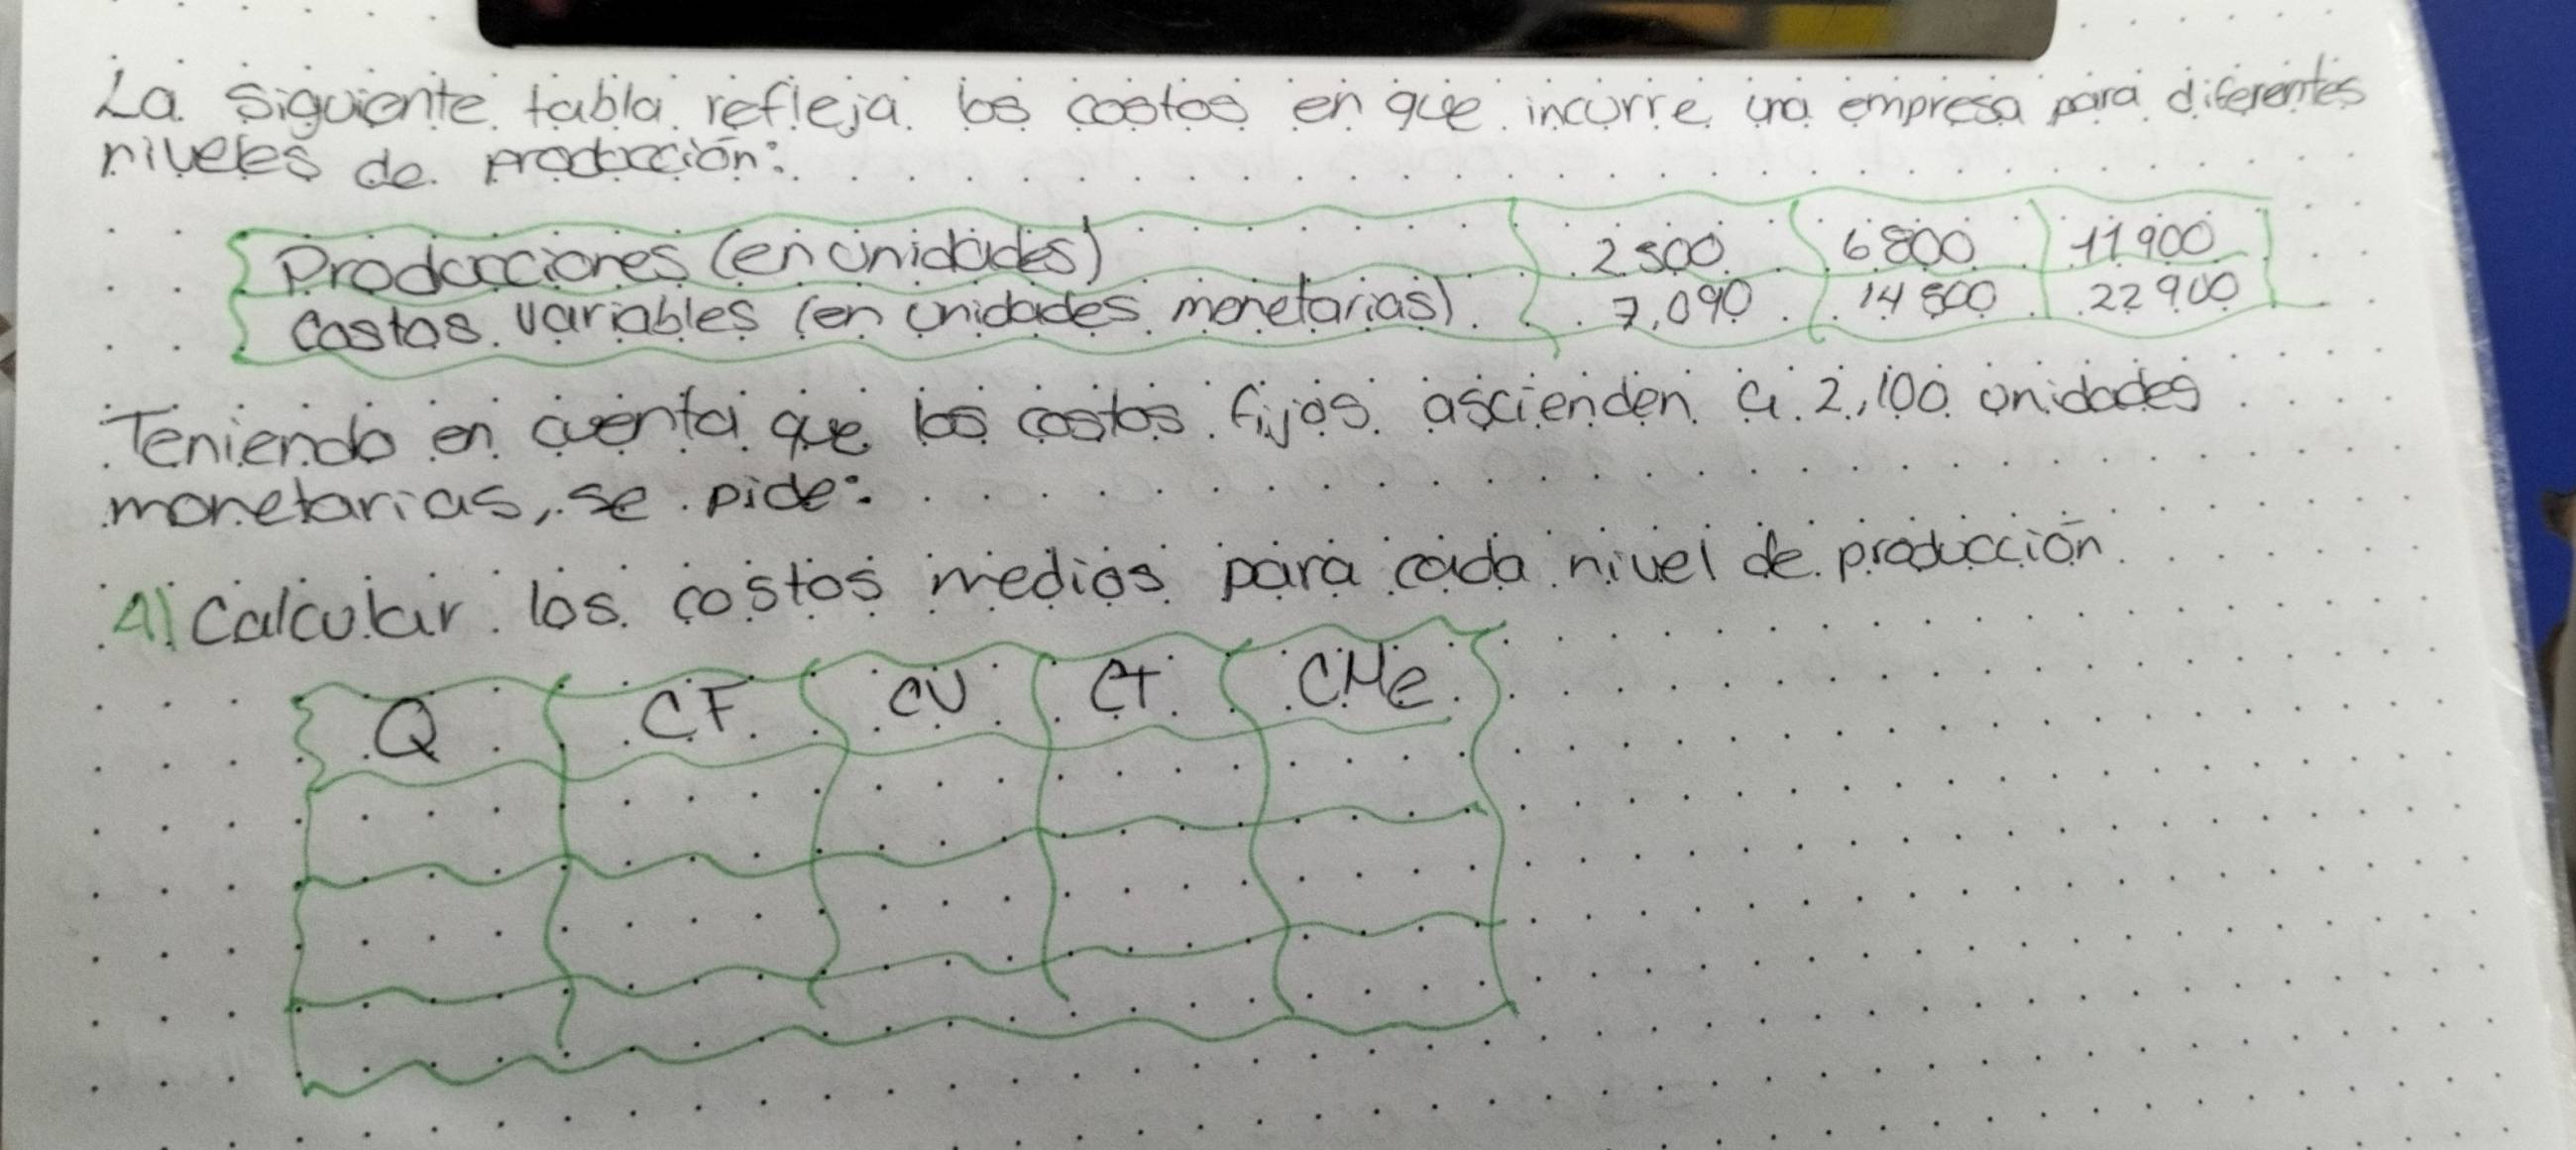 La siguiente tabla refleja los costos en que incurre una empresa para diferentes
niveles de producción:
Producciones (en unidades) 2500 6800 11900
Costos variables (en unidades monetarias) 7,090 14500 22900
Teniendo en cuenta que los costos fijos ascienden a 2,100 unidades
monetarias, se pide:
A) Calcular los costos medios para cada nivel de producción
Q CF CV CT CMe